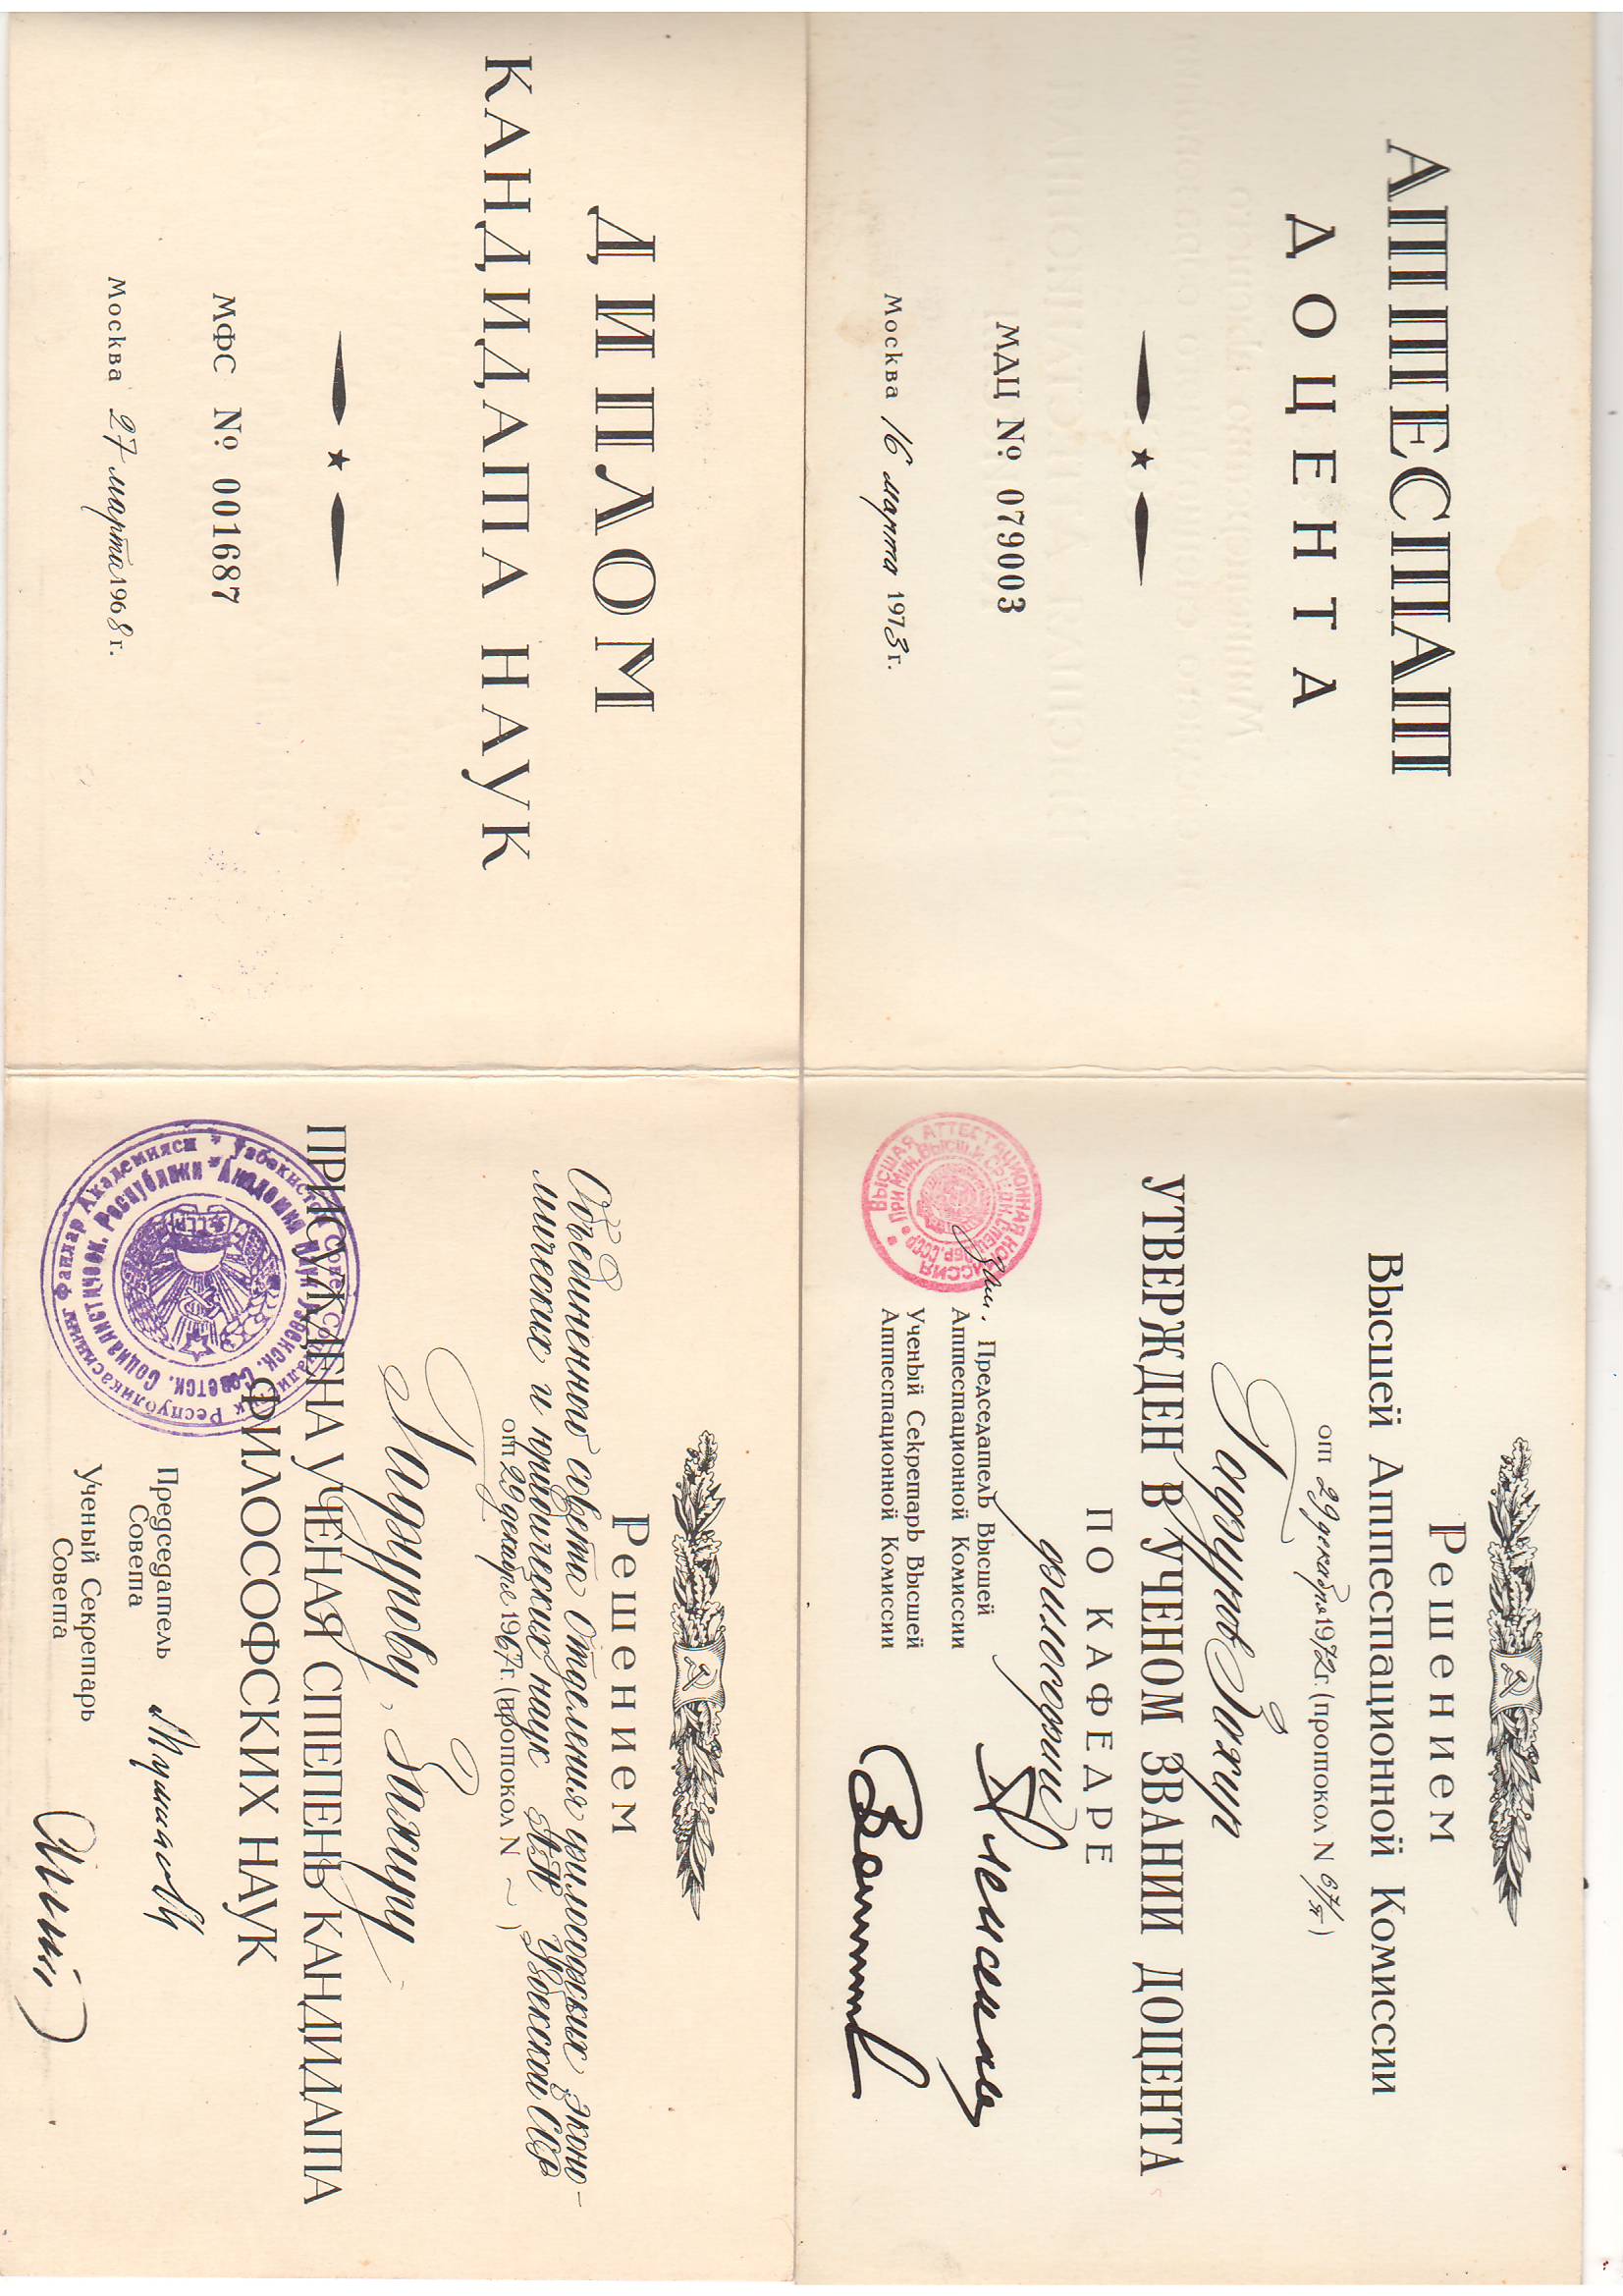 АТТЕСТАТ
ДОЦЕНТА
МДЦ № 079003
Москва 16 марта 1973 г.
Решением
Высшей Аттестационной Комиссии
от 29 декабря 1972 г. (протокол N 67/п)
Гафуров Захир
УТВЕРЖДЕН В УЧЕНОМ ЗВАНИИ ДОЦЕНТА
ПО КАФЕДРЕ
философии
Зам. Председатель Высшей
Аттестационной Комиссии
Ученый Секретарь Высшей
Аттестационной Комиссии
ВЫСШАЯ АТТЕСТАЦИОННАЯ КОМИССИЯ
При Мин. Высш. и Сред. Спец. Обр. СССР
ДИПЛОМ
КАНДИДАТА НАУК
МФС № 001687
Москва 27 марта 1968 г.
Решением
Объединенного совета Отделения философских эконо-
мических и юридических наук АН Узбекской ССР
от 29 декабря 1967 г. (протокол N ~ )
Гафурову Захиру
ПРИСУЖДЕНА УЧЕНАЯ СТЕПЕНЬ КАНДИДАТА
ФИЛОСОФСКИХ НАУК
Председатель
Совета
Ученый Секретарь
Совета